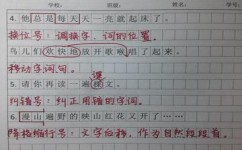 4.他总是每天天一亮就起床了。
换位号:调换字、词的位置。
鸟儿们欢快地放开歌喉唱了起来。
移动字词句。
5.请你再读一遍课文。
纠错号:纠正用错的字词。
6.漫山遍野的映山红花又开了…
降格缩行号:文字后移,作为自然段段首。